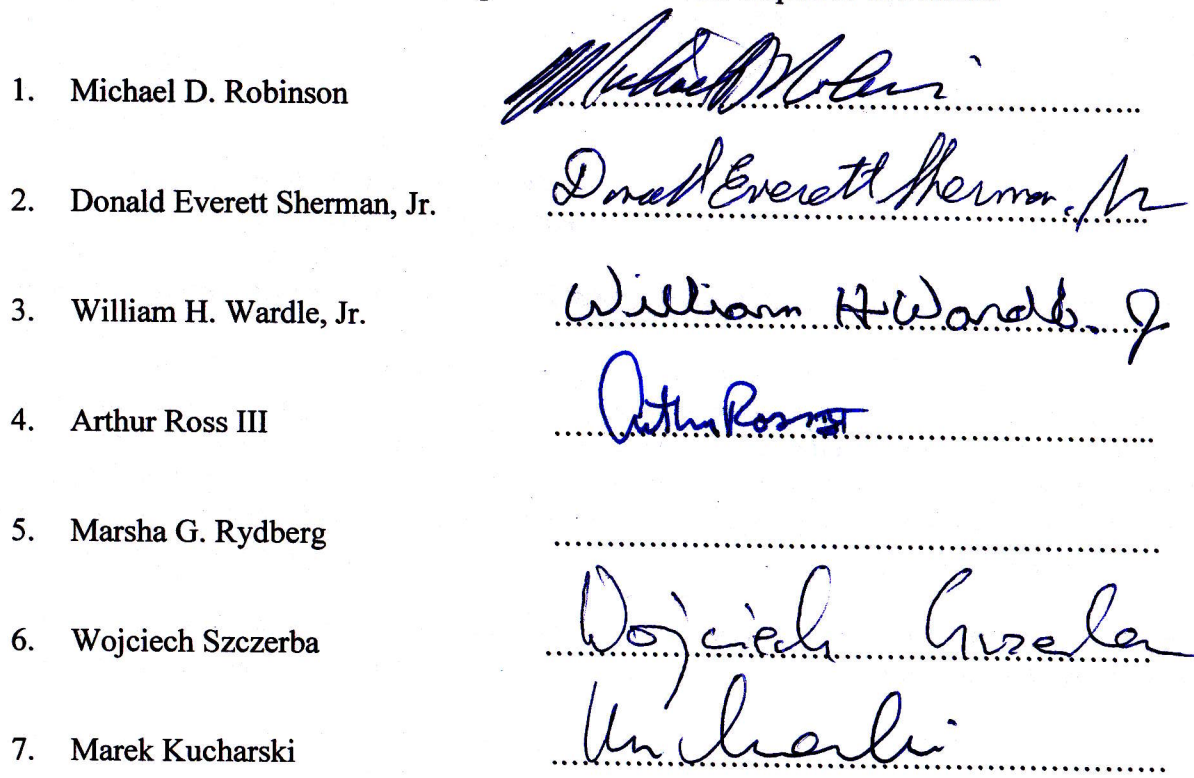 1. Michael D. Robinson
2. Donald Everett Sherman, Jr. Donald Everett Sherman, Jr
3. William H. Wardle, Jr. William H. Wardle. J
4. Arthur Ross III Arthur Ross III
5. Marsha G. Rydberg
6. Wojciech Szczerba Wojciech
7. Marek Kucharski